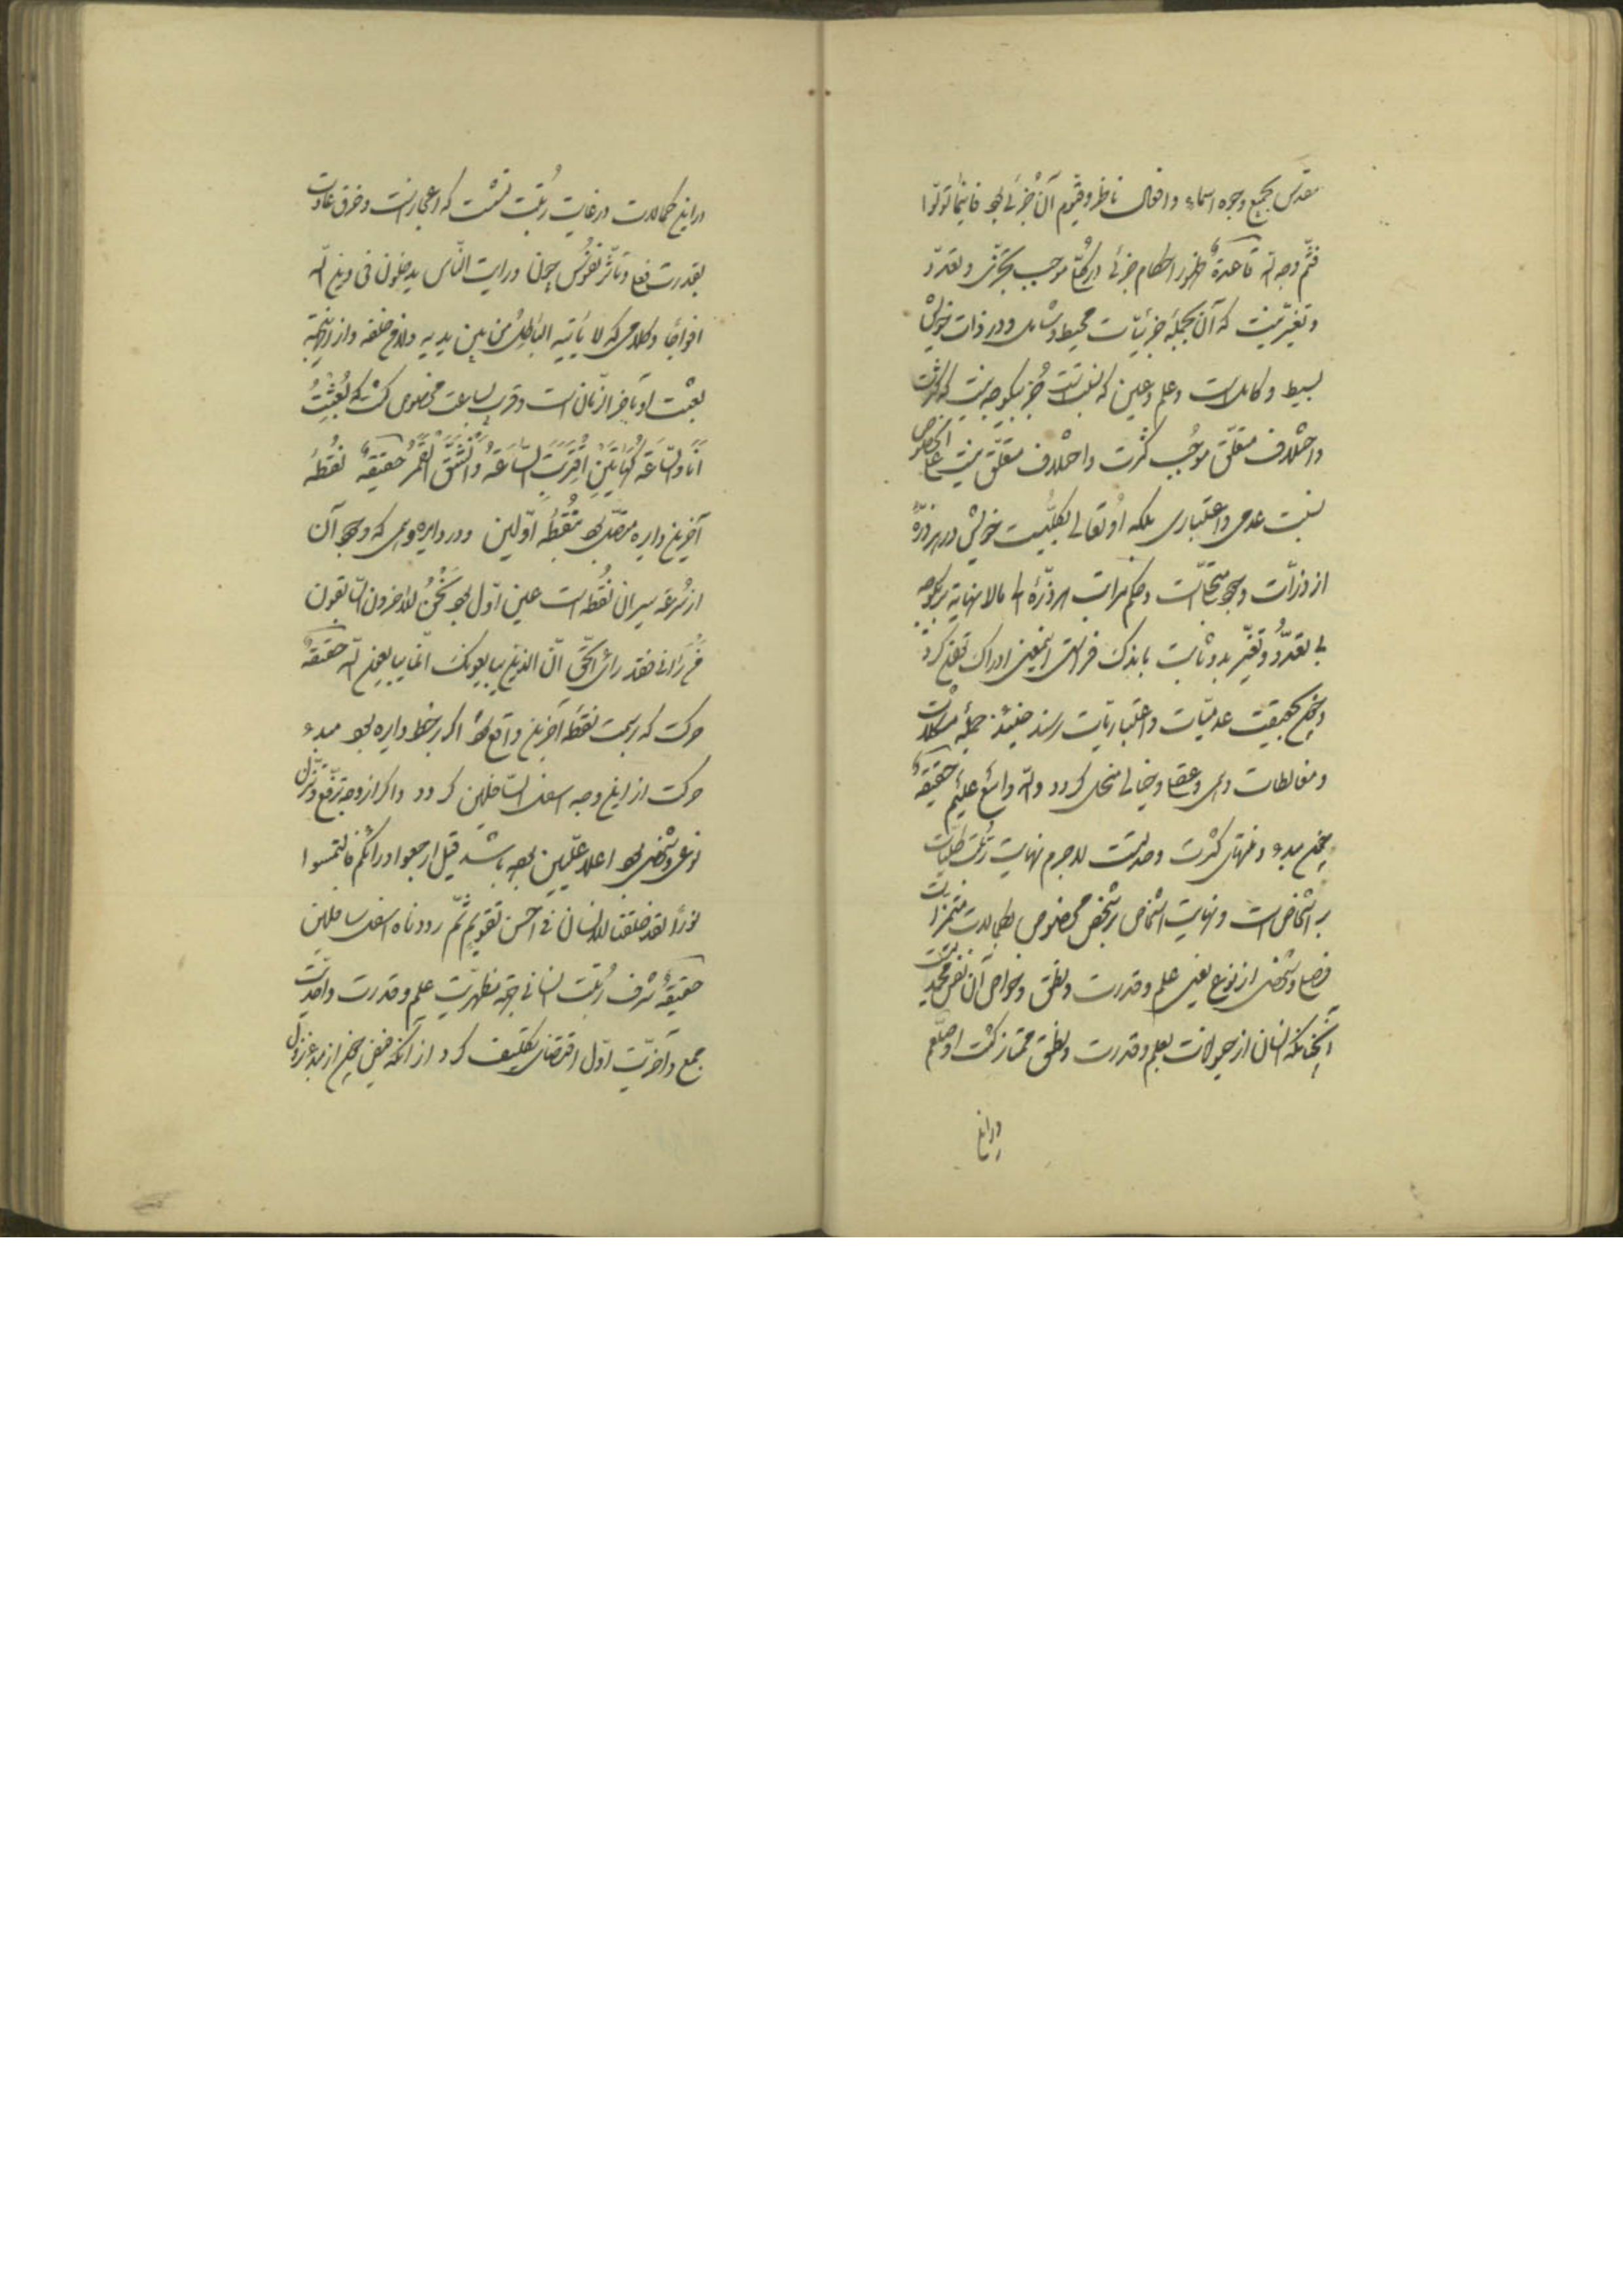 مقدس بجمیع وجوه اسماء و افعال ناظر و قیوم آن جزئی بود فاینما تولوا
فثم وجه الله قاعدة ظهور احکام جزئی در کلی موجب تجزی و تعدد
و تغیر نیست که آن بجمله جزئیات محیط و شامل و در ذات خویش
بسیط و کاملست و علم و عین که نسبتست جز بیکوجه نیست که کثرت
و اختلاف متعلق موجب کثرت و اختلاف متعلق نیست علی الخصوص
نسبت عدمی و اعتباری بلکه او تعالی بکلیت خویش در هر ذره
از ذرات وجود متجلیست و حکم مراتب هر ذره الی مالانهایة بیکوجه
بی تعدد و تغیر بدو ثابت بابذک فراست این معنی ادراک توان کرد
و چون بحقیقت عدمیات و اعتباریات رسند حینئذ جمله مشکلات
و مغالطات وهمی و عقلی و خیالی منحل گردد والله واسع علیم حقیقة
چون مبدء و منتهای کثرت وحدتست لاجرم نهایت رتبت کلیات
بر اشخاص است و نهایت اشخاص بر شخص مخصوص بکمالات متمیزات
فصلی و شخصی از نوع یعنی علم و قدرت و نطق و خواص آن نفس محمدیست
آنچنانکه انسان از حیوانات بعلم و قدرت و نطق ممتاز گشت او صلعم
در این
در این کمالات در غایت رتبت گشت که اعجازست و خرق عادات
بقدرت فعل و تأثر نفوس چون و رایت الناس یدخلون فی دین الله
افواجا و کلامی که لا یأتیه الباطل من بین یدیه ولا من خلفه و از اینجهة
بعثت او بآخر الزمان است و قرب بساعت مخصوص گشت که بعثت
انا والساعة کهاتین اقتربت الساعة وانشق القمر حقیقة نقطه
آخرین دایره متصل بود بنقطه اولین و در دایره وهمی که وجود آن
از سرعة سیران نقطه است عین اول بود نحن الاخرون السابقون
من رآنی فقد رای الحق ان الذین یبایعونک انما یبایعون الله حقیقة
حرکت که بسمت نقطه آخرین واقع بود اگر بر خط دایره بود مبدء
حرکت از این وجه اسفل السافلین گردد و اگر از وجه ترفع و تنزل
نوعی و شخصی بود اعلا علیین بوده باشد قیل ارجعوا وراءکم فالتمسوا
نورا لقد خلقنا الانسان فی احسن تقویم ثم رددناه اسفل سافلین
حقیقة شرف رتبت انسانی بجهة مظهریت علم و قدرت و احدیت
جمع و آخریت اول اقتضای تکلیف کرد از آنکه فیض چون از مبدء نزول